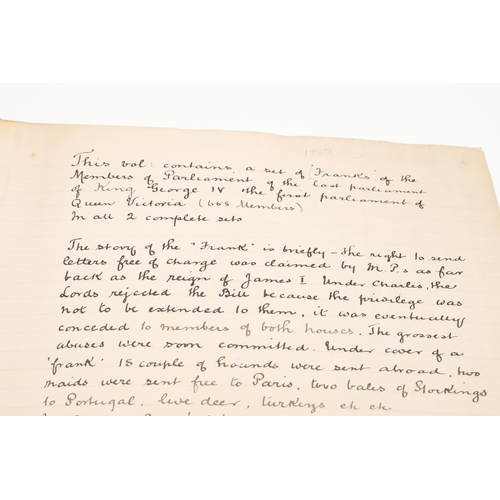 This vol: contains a set of "Franks" of the
Members of Parliament of the last parliament
of King George IV & the first parliament of
Queen Victoria (658 Members)
In all 2 complete sets
The story of the "Frank" is briefly – the right to send
letters free of charge was claimed by M.P.s as far
back as the reign of James I. Under Charles, the
Lords rejected the Bill because the privilege was
not to be extended to them, it was eventually
conceded to members of both houses. The grossest
abuses were soon committed. Under cover of a
'frank' 15 couple of hounds were sent abroad, two
maids were sent free to Paris, two bales of Stockings
to Portugal, live deer, turkeys etc etc